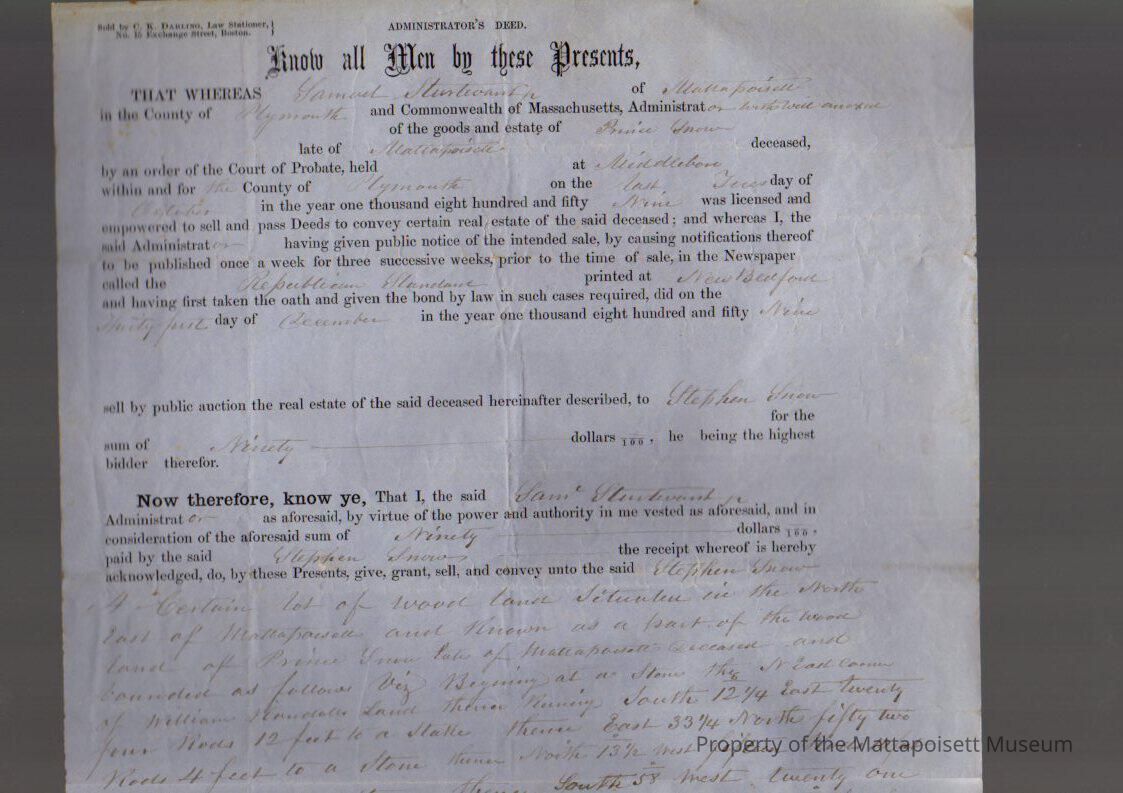 Sold by C. K. DARLING, Law Stationer,
No. 15 Exchange Street, Boston.
ADMINISTRATOR'S DEED.
Know all Men by these Presents,
THAT WHEREAS Samuel Sturtevant jr of Mattapoisett
in the County of Plymouth and Commonwealth of Massachusetts, Administrator with will annexed
of the goods and estate of Prince Snow
late of Mattapoisett deceased,
by an order of the Court of Probate, held at Middleboro
within and for the County of Plymouth on the last Tues day of
October in the year one thousand eight hundred and fifty Nine was licensed and
empowered to sell and pass Deeds to convey certain real estate of the said deceased; and whereas I, the
said Administrator having given public notice of the intended sale, by causing notifications thereof
to be published once a week for three successive weeks, prior to the time of sale, in the Newspaper
called the Republican Standard printed at New Bedford
and having first taken the oath and given the bond by law in such cases required, did on the
Thirty first day of December in the year one thousand eight hundred and fifty Nine
sell by public auction the real estate of the said deceased hereinafter described, to Stephen Snow
for the
sum of Ninety dollars 100, he being the highest
bidder therefor.
Now therefore, know ye, That I, the said Saml Sturtevant jr
Administrator as aforesaid, by virtue of the power and authority in me vested as aforesaid, and in
consideration of the aforesaid sum of Ninety dollars 100,
paid by the said Stephen Snow the receipt whereof is hereby
acknowledged, do, by these Presents, give, grant, sell, and convey unto the said Stephen Snow
A Certain lot of wood land Situated in the North
East of Mattapoisett and Known as a part of the wood
land of Prince Snow late of Mattapoisett Deceased and
bounded as follows Viz Begining at a Stone the N East Corner
of William Randalls Land thence Runing South 12 1/4 East twenty
four Rods 12 feet to a Stake thence East 33 3/4 North fifty two
Rods 4 feet to a Stone thence North 13 1/2 West
thence South 58 West twenty one
Property of the Mattapoisett Museum